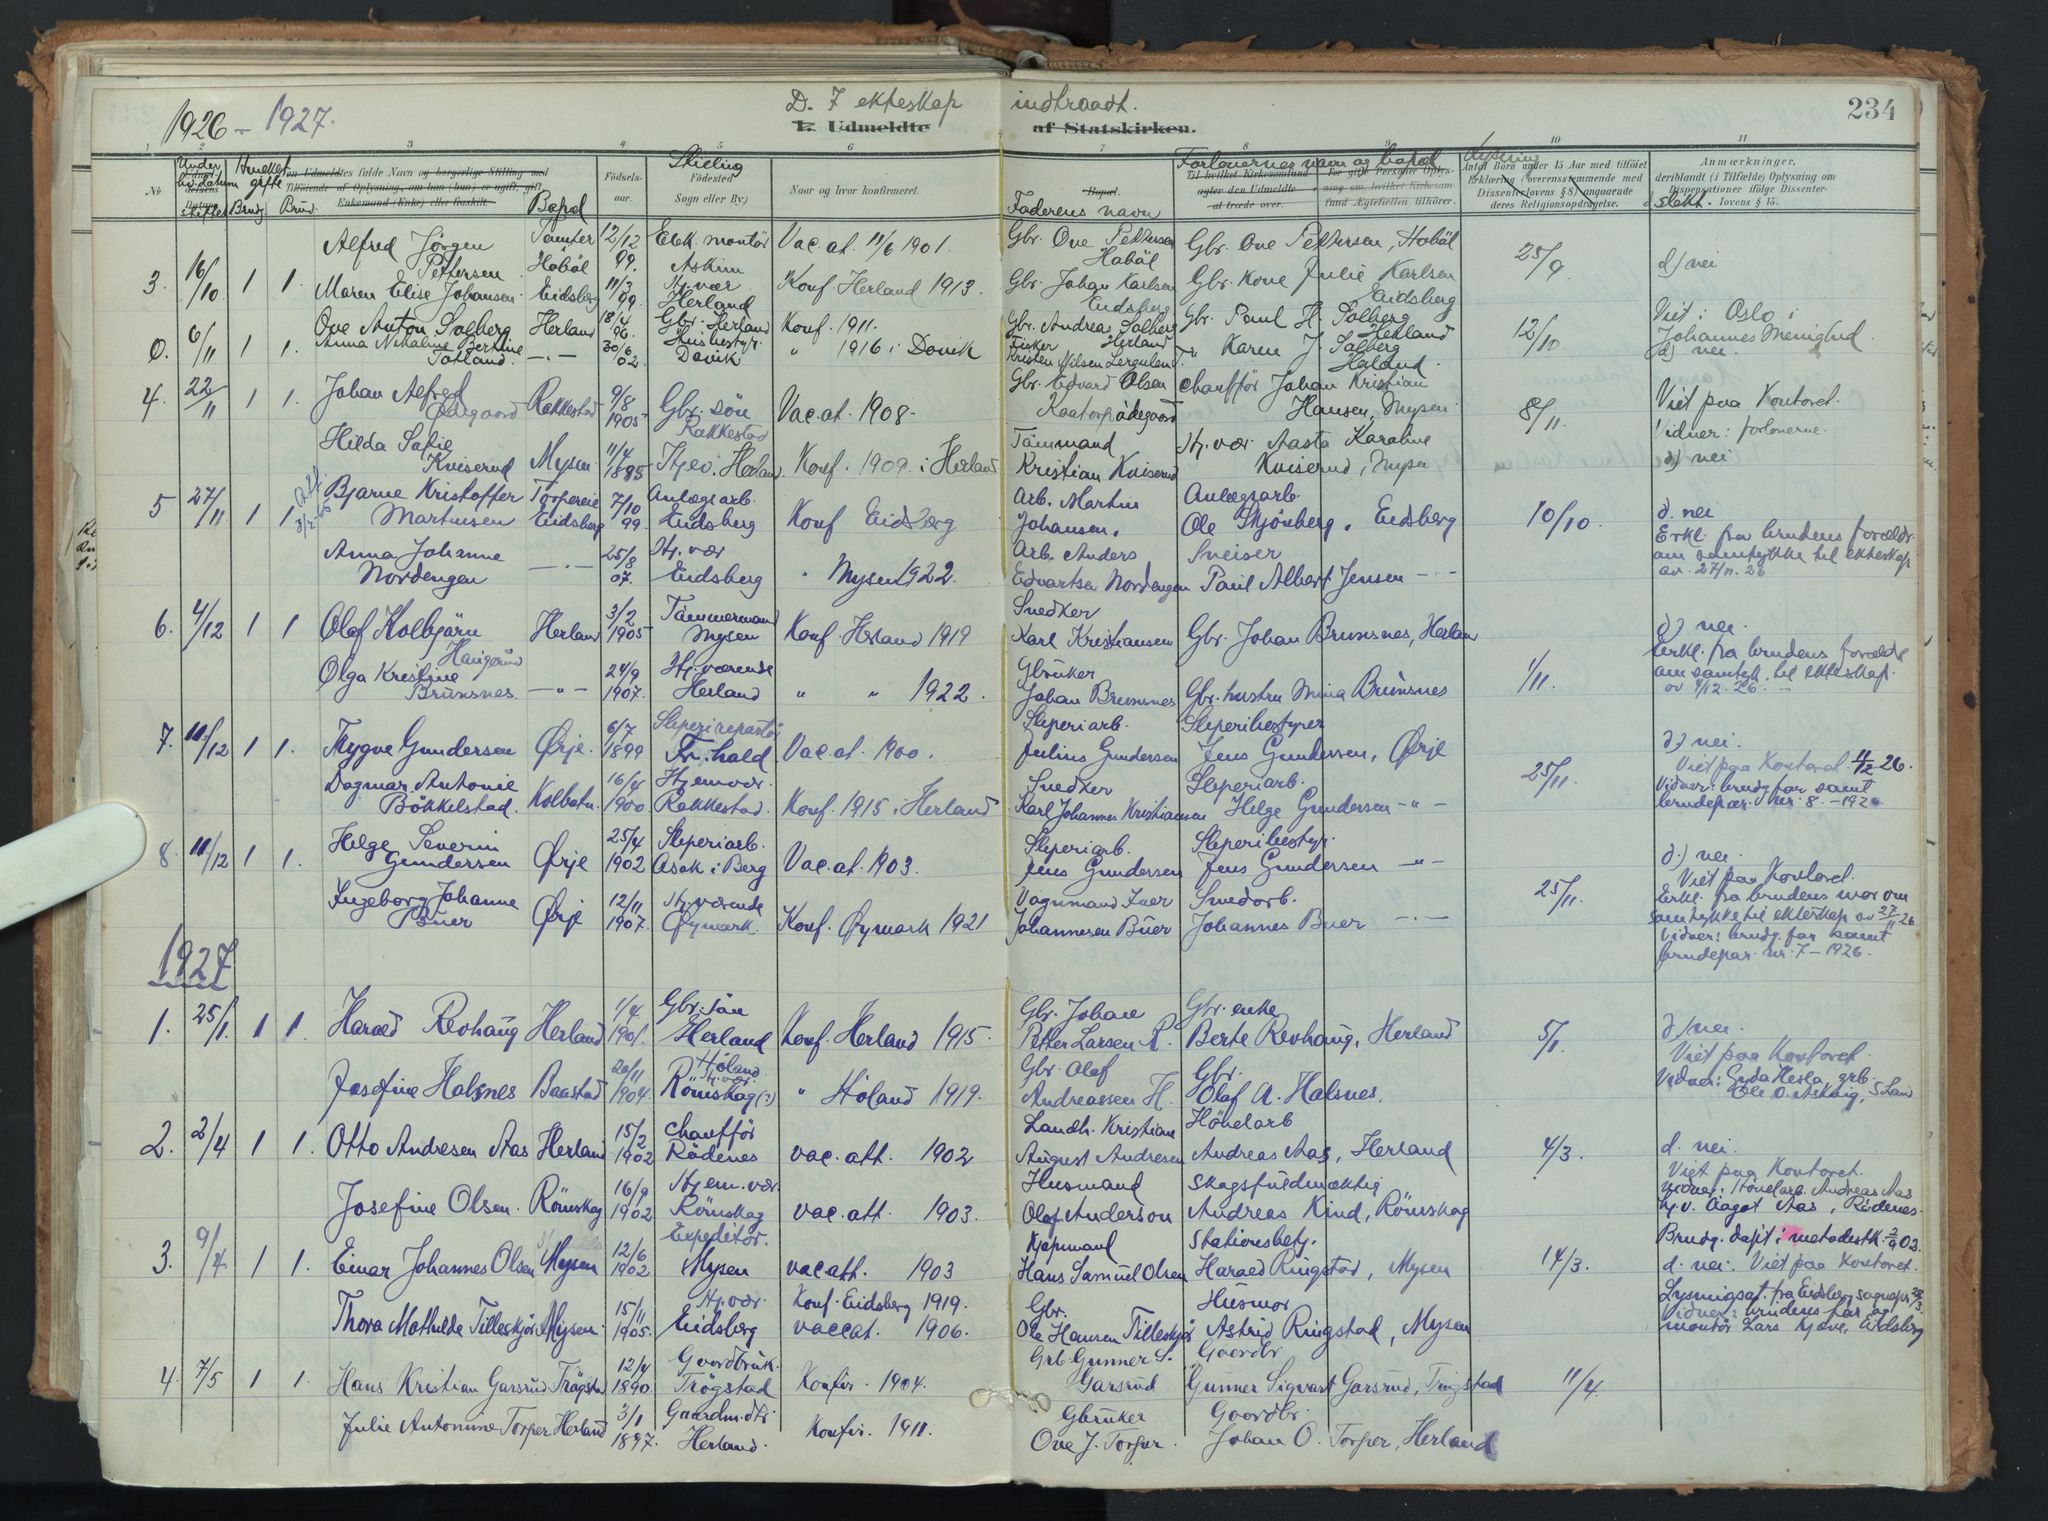 1926 – 1927.
D. I ekteskap indtraadt.
E. Udmeldte af Statskirken.
234
1 2 3 4 5 6 7 8 9 10 11
No
Hvilket gifte
Brudg. Brud
en Udmeldtes fulde Navn og borgerlige Stilling med
Tilføiende af Oplysning, om han (hun) er ugift, gift
Enkemand (Enke) eller fraskilt.
Bopæl
Fødsels-
aar.
Stilling
Fødested
Sogn eller By.)
Naar og hvor konfirmeret.
Bopæl.
Faderens navn
Forlovernes navn og bopæl
Til hvilket Kirkesamfund
agter den Udmeldte
at træde over.
For gifte Personer Oplys-
ning om, hvilket Kirkesam-
fund Ægtefællen tilhører.
Lysning
Antal Børn under 15 Aar med tilføiet
Erklæring (overensstemmende med
Dissenterlovens § 8) angaaende
deres Religionsopdragelse.
Anmærkninger,
deriblandt (i Tilfælde) Oplysning om
Dispensationer ifølge Dissenter-
lovens § 15.
d slekt.
3. 16/10 1 1. Alfred Jørgen Pettersen Tomter Hobøl 12/12 99. Elek. montør Askim Vac. at. 11/6 1901. Gbr. Ove Pettersen Hobøl Gbr. Ove Pettersen, Hobøl 25/9 d) nei
Maren Elise Johansen Eidsberg 11/3 99 Hj. vær Herland Konf. Herland 1913. Gbr. Johan Karlsen Eidsberg Gbr. kone Julie Karlsen Eidsberg
0. 6/11 1 1. Ove Anton Solberg Herland 18/4 96. Gbr. Herland Konf. 1911. Gbr. Andreas Solberg Herland Gbr. Paul H. Solberg Herland 12/10 Viet i Oslo i Johannes Menighed.
Anna Nikoline Bertine Totland –"– 30/6 02. Husbestyr. Davik " 1916 i Davik Fisker Kristen Nilsen Karen J. Solberg d) nei.
4. 22/11 1 1. Johan Alfred Ødegaard Rakkestad 9/8 1905 Gbr. søn Rakkestad Vac. at. 1908. Gbr. Edvard Olsen Kaatorpødegaard chauffør Johan Kristian Hansen, Mysen 8/11. Viet paa Kontoret. Vidner: forloverne.
Hilda Sofie Kviserud Mysen 11/4 1895 Hjev. Herland Konf. 1909 i Herland Tømmand Kristian Kviserud Hj. vær. Aasta Karoline Kviserud, Mysen d) nei
5 27/11 1 1 Bjarne Kristoffer Martinsen Torpereie Eidsberg 7/10 99. Anlægsarb. Eidsberg Konf Eidsberg Arb. Martin Johansen. Anlægsarb. Ole Skjönberg. Eidsberg 10/10. d. nei
Erkl. fra brudens forældr. om samtykke til ekteskap av 27/11. 26.
Anna Johanne Nordengen –"– 25/8 07. Hj. vær Eidsberg " Mysen 1922. Arb. Anders Edvartsen Nordengen Sveiser Paul Albert Jensen –"–
6. 4/12 1 1 Olaf Kolbjørn Haugerud Herland 3/2 1905 Tømmermand Mysen Konf. Herland 1919 Snedker Karl Kristiansen Gbr. Johan Brunsnes, Herland 1/11. d) nei.
Erkl. fra brudens foreldr om samtyk. til ekteskap. av 4/12. 26. –
Olga Kristine Brunsnes –"– 24/9 1907. Hj. værende Herland " " 1922. Gbruker Johan Brunsnes Gbr. hustru Mina Brunsnes
7. 11/12 1 1. Trygve Gundersen Ørje. 6/7 1899 Sliperireparatör Fr. hald Vac. at. 1900. Sliperiarb. Julius Gundersen Sliperibestyrer Jens Gundersen, Ørje 25/11. d) nei.
Viet paa Kontoret 11/12 26. Vidner: brudg. far samt brudepar nr. 8 – 1926
Dagmar Antonie Bökkelstad. Kolbotn. 16/4 1900 Hjemvær. Rakkestad. Konf. 1915 i Herland Snedker Karl Johannes Kristiansen Sliperiarb. Helge Gundersen –"–
8. 11/12 1 1. Helge Severin Gundersen Ørje 25/4 1902 Sliperiarb. Asak i Berg Vac. at. 1903. Sliperiarb. Jens Gundersen Sliperibestyr. Jens Gundersen –"– 25/11. d) nei. Viet paa Kontoret.
Erkl. fra brudens mor om samtykke til ekteskap av 27/11 26
Vidner: brudg. far samt brudepar. nr. 7 – 1926.
Ingeborg Johanne Buer Ørje 12/11 1907. Hj. værende Øymark. Konf. Øymark 1921 Vognmand Iver Johannesen Buer Smedarb. Johannes Buer –"–
1927
1. 25/1. 1 1. Harald Revhaug Herland 1/4. 1901. Gbr. søn Herland Konf. Herland 1915. Gbr. Johan Petter Larsen R. Gbr. enke Berte Revhaug, Herland 5/1. d) nei.
Viet paa Kontoret.
Josefine Halsnes Baastad 20/11 1904 Höland Hj. vær. Römskog (?) " Höland 1919. Gbr. Olaf Andreassen H. Gbr. Olaf A. Halsnes.
2. 2/4 1 1. Otto Andresen Aas Herland 15/2 1902 chauffør Rödenes vac. att. 1902 Landh. Kristian August Andresen Hövelarb Andreas Aas, Herland 4/3. d. nei.
Viet paa Kontoret.
Vidner: Hövelarb. Andreas Aas Hj. v. Aagot Aas, Rödenes.
Josefine Olsen. Römskog 16/9 1902 Hjem. vær. Römskog vac. att. 1903. Husmand Olaf Anderson Skogsfuldmæktig Andreas Kind, Römskog
3. 9/4 1 1. Einar Johannes Olsen Mysen 12/6 1902 Expeditör. Mysen vac att. 1903 Kjøpmand Hans Samuel Olsen Stationsbetj. Harald Ringstad, Mysen 14/3. Brudg. døpt i metodistk. 3/9 02.
d. nei. Viet paa Kontoret.
Lysningsat. fra Eidsberg sognepr.
Vidner: brudens far og montör Lars Kjæve, Eidsberg
Thora Mathilde Tilleskjør Mysen. 15/11 1905. Hj. vær. Eidsberg Konf. Eidsberg 1919. vaccat. 1906. Gbr. Ole Hansen Tilleskjør Husmor Astrid Ringstad, Mysen
4. 7/5 1 1 Hans Kristian Garsrud Trögstad 12/4 1890 Gaardbruk. Trögstad Konfir. 1904. Grb. Gunner S. Garsrud Gaardbr Gunner Sigvart Garsrud, Trögstad 11/4.
Julie Antonine Torper Herland 3/1 1897. Gaardm. dtr. Herland. Konfir. 1911. Gbruker Ove J. Torper. Gaardbr. Johan O. Torper, Herland